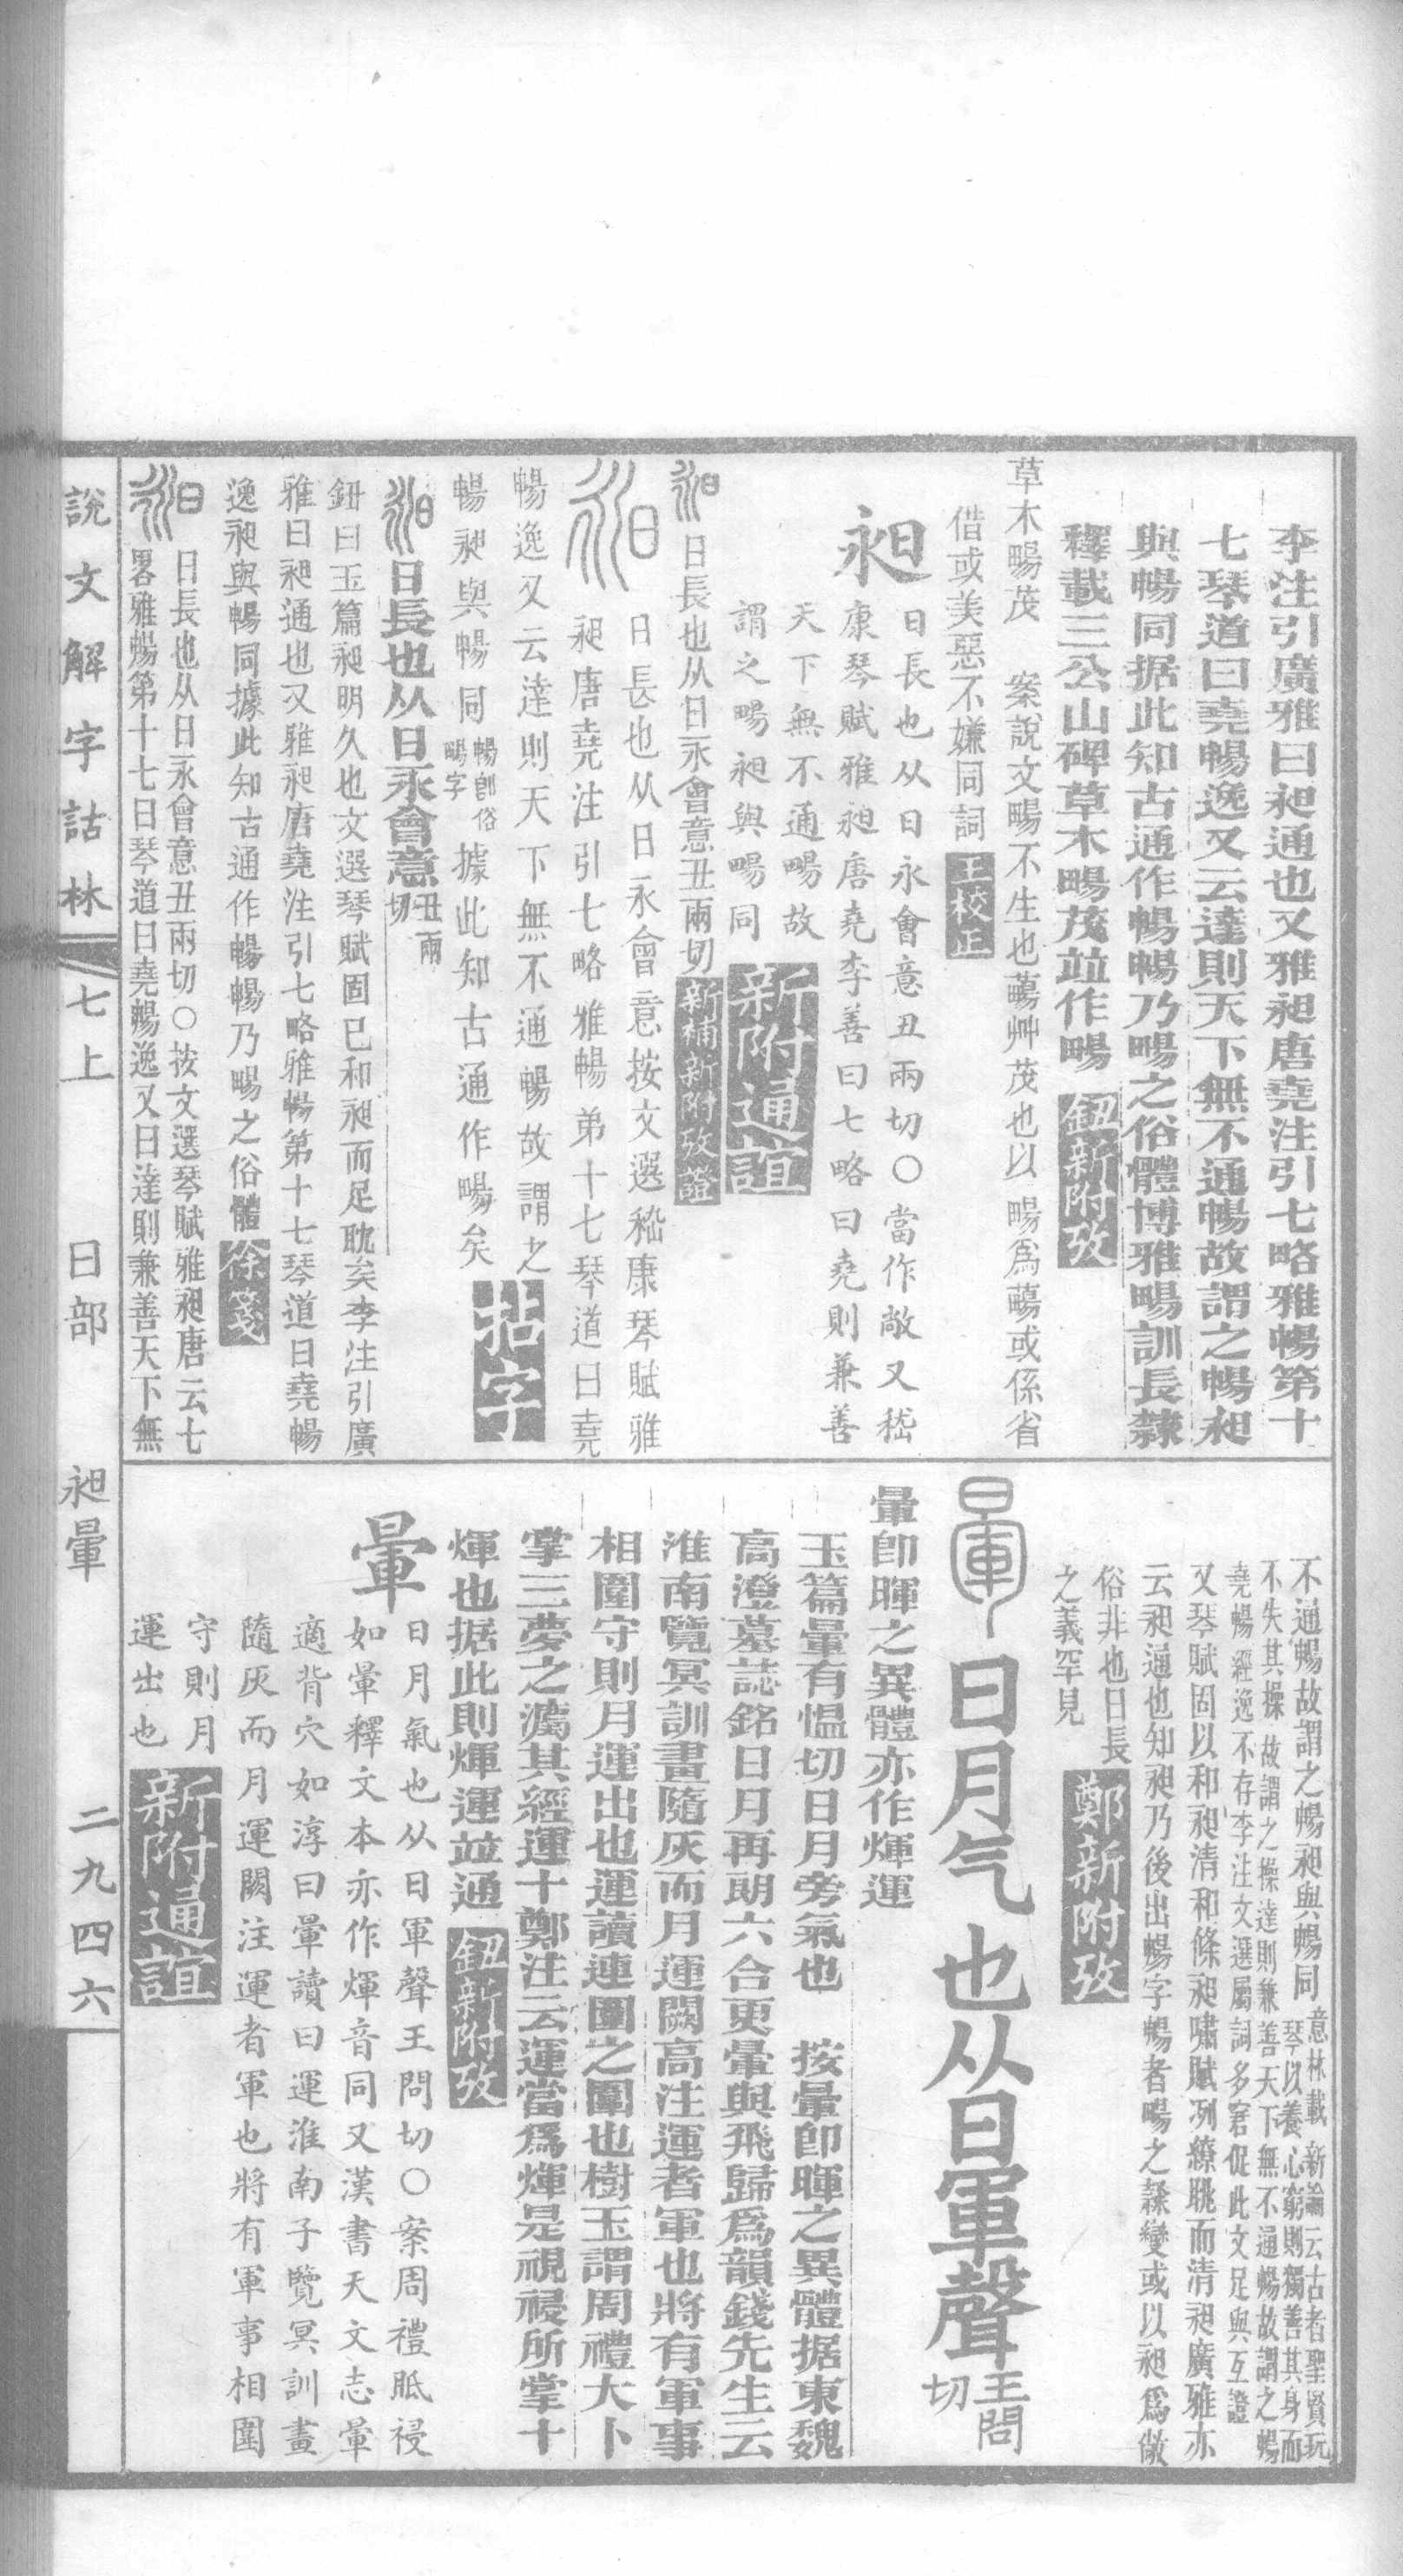 李注引廣雅曰昶通也又雅昶唐堯注引七略雅暢第十
七琴道曰堯暢逸又云達則天下無不通暢故謂之暢昶
與暢同据此知古通作暢暢乃畼之俗體博雅畼訓長隸
釋載三公山碑草木畼茂竝作畼 鈕新附攷
草木畼茂 案說文畼不生也蕩艸茂也以畼爲蕩或係省
借或美惡不嫌同詞 王校正
昶
日長也从日永會意丑兩切○當作敞又嵇
康琴賦雅昶唐堯李善曰七略曰堯則兼善
天下無不通畼故
謂之畼昶與畼同 新附通誼
昶 日長也从日永會意丑兩切 新補新附攷證
昶 日長也从日永會意按文選嵇康琴賦雅
昶唐堯注引七略雅暢弟十七琴道曰堯
暢逸又云達則天下無不通暢故謂之
暢昶與暢同 暢卽俗畼字 據此知古通作畼矣 拈字
昶 日長也从日永會意 丑兩切
鈕曰玉篇昶明久也文選琴賦固已和昶而足耽矣李注引廣
雅曰昶通也又雅昶唐堯注引七略雅暢第十七琴道曰堯暢
逸昶與暢同據此知古通作暢暢乃畼之俗體 徐箋
昶 日長也从日永會意丑兩切○按文選琴賦雅昶唐云七
畧雅暢第十七曰琴道曰堯暢逸又曰達則兼善天下無
不通暢故謂之暢昶與暢同 意林載新論云古者聖賢玩
琴以養心窮則獨善其身而
不失其操故謂之操達則兼善天下無不通暢故謂之暢
堯暢經逸不存李注文選屬詞多窘促此文足與互證
又琴賦固以和昶清和條昶嘯賦冽繚眺而清昶廣雅亦
云昶通也知昶乃後出暢字暢者畼之隸變或以昶爲敞
俗非也日長
之義罕見 鄭新附攷
暈 日月气也从日軍聲 王問切
暈卽暉之異體亦作煇運
玉篇暈有愠切日月旁氣也 按暈卽暉之異體据東魏
高澄墓誌銘日月再朗六合更暈與飛歸爲韻錢先生云
淮南覽冥訓畫隨灰而月運闕高注運者軍也將有軍事
相圍守則月運出也運讀連圍之圍也樹玉謂周禮大卜
掌三夢之灋其經運十鄭注云運當爲煇是視祲所掌十
煇也据此則煇運竝通 鈕新附攷
暈
日月氣也从日軍聲王問切○案周禮眂祲
如暈釋文本亦作煇音同又漢書天文志暈
適背穴如淳曰暈讀曰運淮南子覽冥訓畫
隨灰而月運闕注運者軍也將有軍事相圍
守則月
運出也 新附通誼
說文解字詁林 七上 日部 昶暈 二九四六